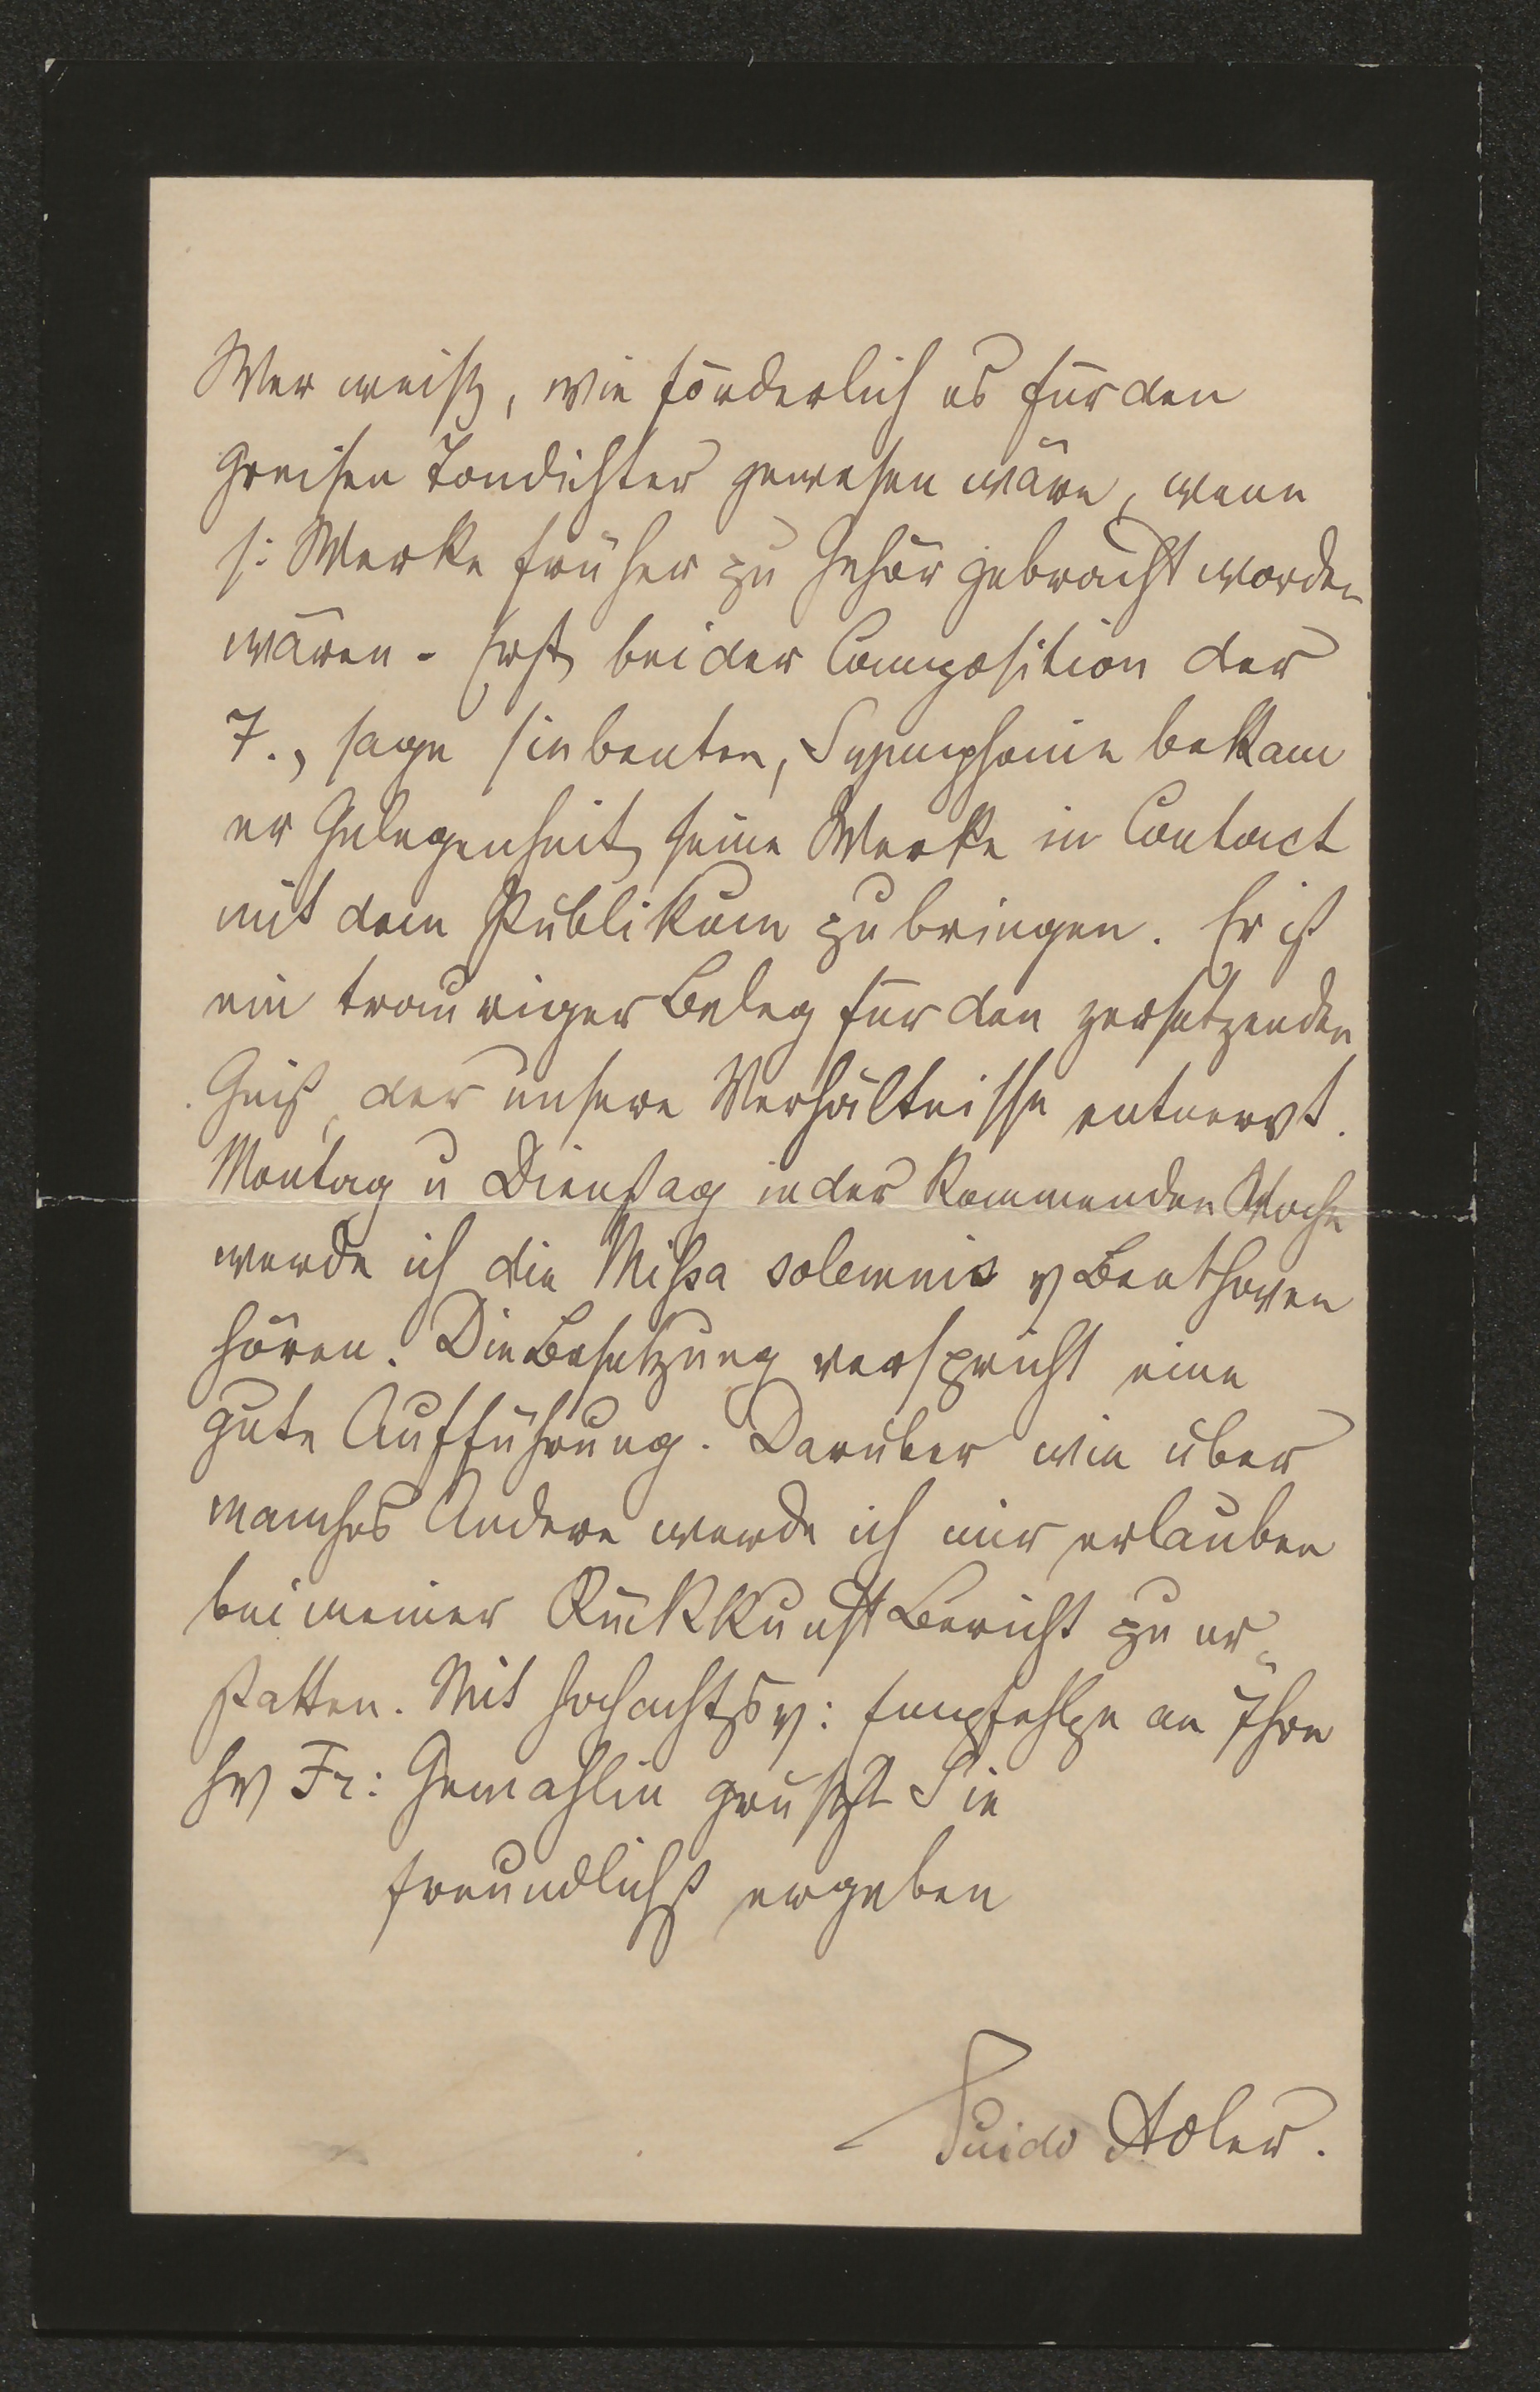 Wer weiß, wie förderlich es für den
greisen Tondichter gewesen wäre, wenn
s: Werke früher zu Gehör gebracht worden
wären. Erst bei der Composition der
7., sage siebenten, Symphonie bekam
er Gelegenheit seine Werke in Contact
mit dem Publikum zu bringen. Er ist
ein trauriger Beleg für den zersetzenden
Geist, der unsere Verhältnisse entnervt.
Montag u Dienstag in der kommenden Woche
werde ich die Missa solemnis v Beethoven
hören. Die Besetzung verspricht eine
gute Aufführung. Darüber wie über
manches Andere werde ich mir erlauben
bei meiner Rückkunft Bericht zu er-
statten. Mit hochachtgsv: Empfehlge an Ihre
Fr: Gemahlin grüßt Sie
freundlichst ergeben
Guido Adler.